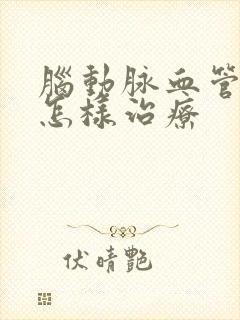 腦動脉血管
怎樣治療
伏晴艷